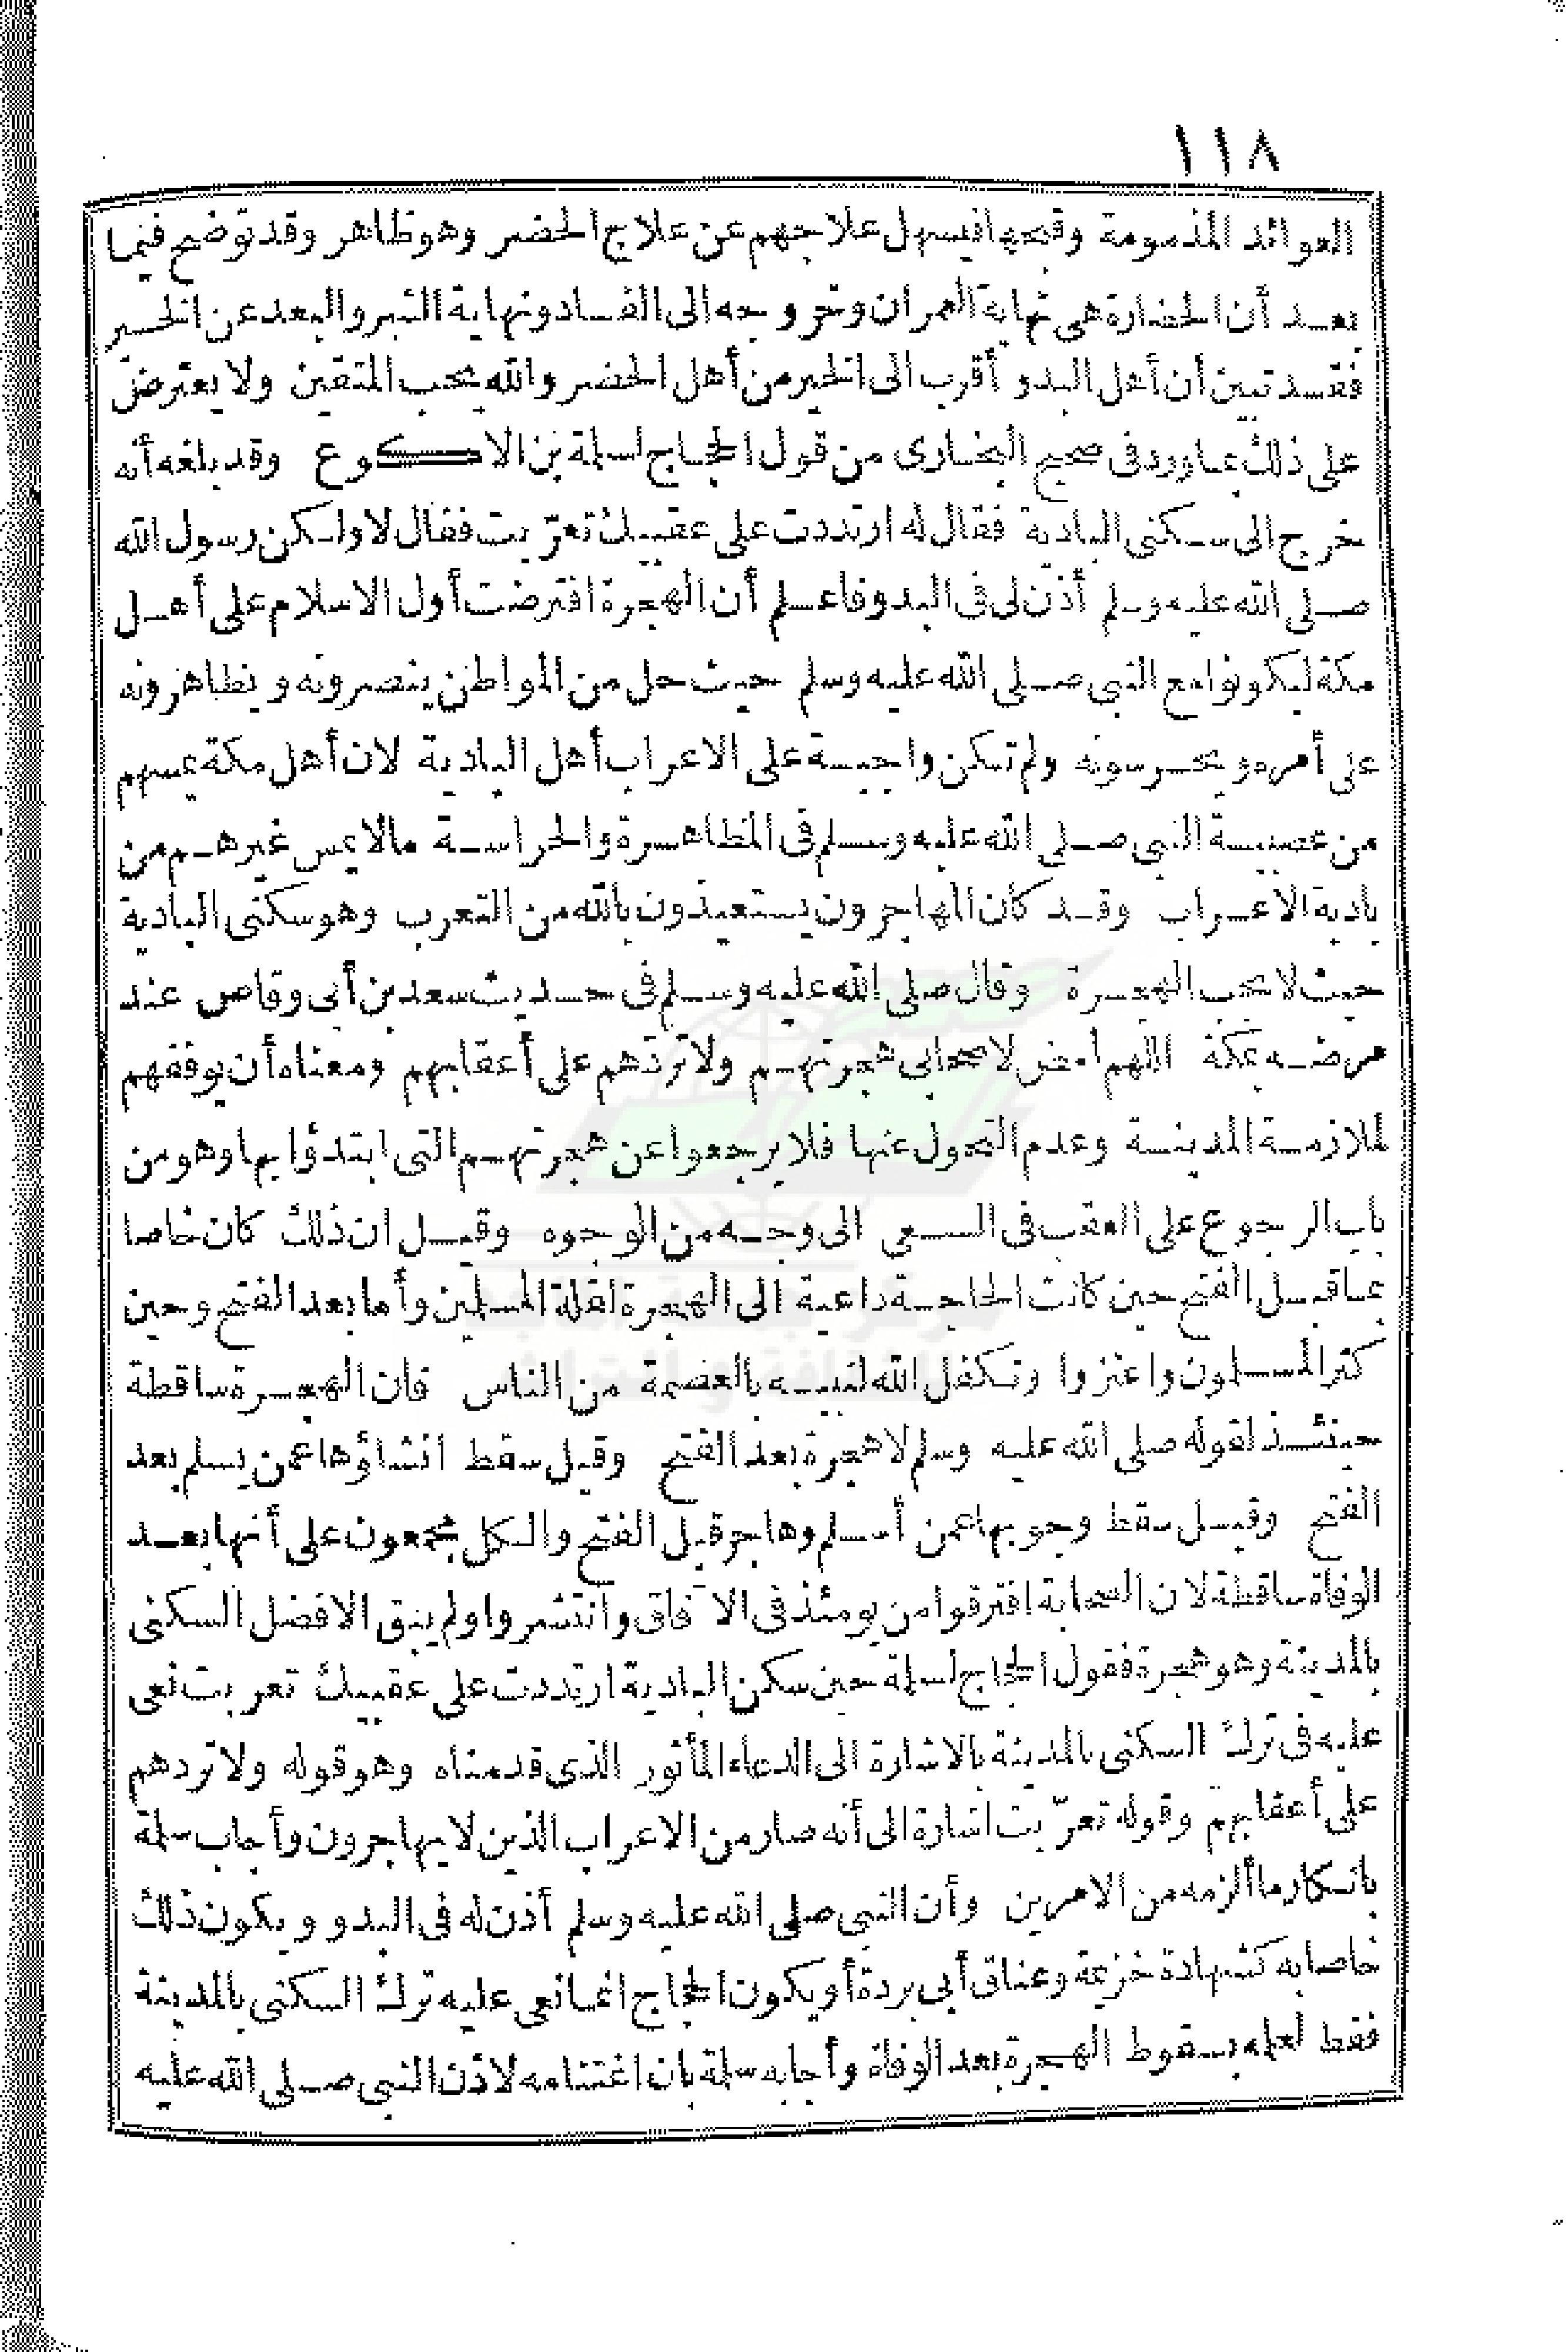 ١١٨
العوائد المذمومة وقبحها فيسهل علاجهم عن علاج الحضر وهو ظاهر وقد توضح فيما
بعد أن الحضارة هى نهاية العمران وخروجه الى الفساد ونهاية الشر والبعد عن الخير
فقد تبين أن أهل البدو أقرب الى الخير من أهل الحضر والله يحب المتقين ولا يعترض
على ذلك بما ورد فى صحيح البخارى من قول الحجاج لسلمة بن الاكوع وقد بلغه أنه
خرج الى سكنى البادية فقال له ارتددت على عقبيك تعرّبت فقال لا ولكن رسول الله
صلى الله عليه وسلم أذن لى فى البدو فاعلم أن الهجرة افترضت أول الاسلام على أهل
مكة ليكونوا مع النبى صلى الله عليه وسلم حيث حل من المواطن ينصرونه ويظاهرونه
على أمره ويحرسونه ولم تكن واجبة على الاعراب أهل البادية لان أهل مكة يمسهم
من عصبية النبى صلى الله عليه وسلم فى المظاهرة والحراسة مالا يمس غيرهم من
بادية الاعراب وقد كان المهاجرون يستعيذون بالله من التعرب وهو سكنى البادية
حيث لا تجب الهجرة وقال صلى الله عليه وسلم فى حديث سعد بن أبى وقاص عند
مرضه بمكة اللهم امض لاصحابى هجرتهم ولا تردّهم على أعقابهم ومعناه أن يوفقهم
لملازمة المدينة وعدم التحول عنها فلا يرجعوا عن هجرتهم التى ابتدؤا بها وهو من
باب الرجوع على العقب فى السعى الى وجه من الوجوه وقيل ان ذلك كان خاصا
بما قبل الفتح حين كانت الحاجة داعية الى الهجرة لقلة المسلمين وأما بعد الفتح وحين
كثر المسلمون واعتزوا وتكفل الله لنبيه بالعصمة من الناس فان الهجرة ساقطة
حينئذ لقوله صلى الله عليه وسلم لا هجرة بعد الفتح وقيل سقط انشاؤها عمن يسلم بعد
الفتح وقيل سقط وجوبها عمن أسلم وهاجر قبل الفتح والكل مجمعون على أنها بعد
الوفاة ساقطة لان الصحابة افترقوا من يومئذ فى الآفاق وانتشروا ولم يبق الا فضل السكنى
بالمدينة وهو هجرة فقول الحجاج لسلمة حين سكن البادية ارتددت على عقبيك تعربت نعى
عليه فى ترك السكنى بالمدينة بالاشارة الى الدعاء المأثور الذى قدمناه وهو قوله ولا تردهم
على أعقابهم وقوله تعرّبت اشارة الى أنه صار من الاعراب الذين لا يهاجرون وأجاب سلمة
بانكار ما ألزمه من الامرين وأن النبى صلى الله عليه وسلم أذن له فى البدو ويكون ذلك
خاصا به كشهادة خزيمة وعناق أبى بردة أو يكون الحجاج انما نعى عليه ترك السكنى بالمدينة
فقط لعلمه بسقوط الهجرة بعد الوفاة وأجابه سلمة بان اغتنامه لاذن النبى صلى الله عليه